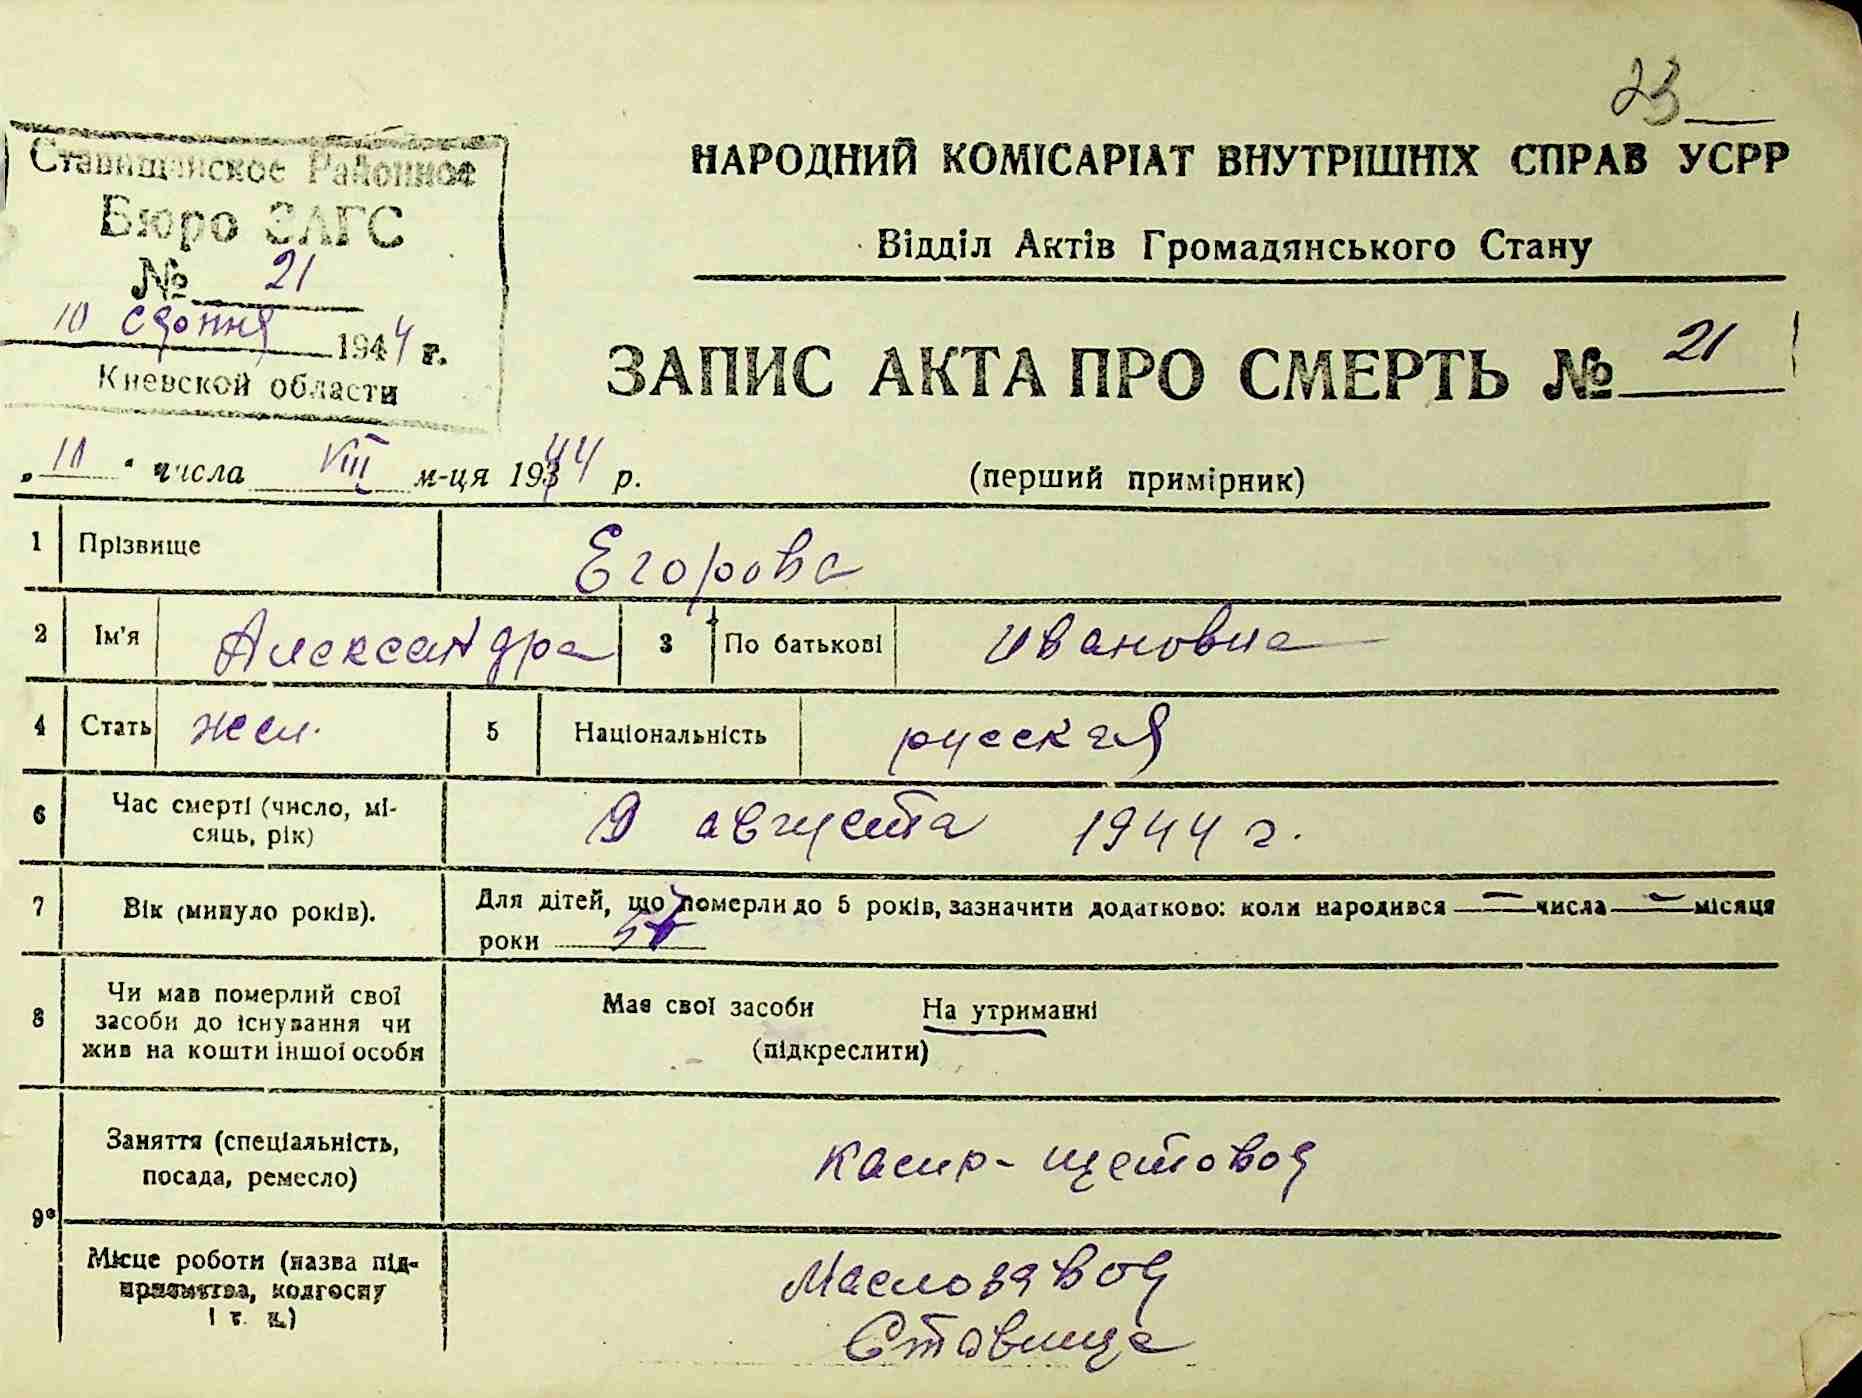 23
Ставищанское Районное
Бюро ЗАГС
№ 21
10 серпня 1944 г.
Киевской области
НАРОДНИЙ КОМІСАРІАТ ВНУТРІШНІХ СПРАВ УСРР
Відділ Актів Громадянського Стану
ЗАПИС АКТА ПРО СМЕРТЬ № 21
„10“ числа VIII м-ця 1944 р. (перший примірник)
1 Прізвище Егорова
2 Ім'я Александра 3 По батькові Ивановна
4 Стать жен. 5 Національність русская
6 Час смерті (число, мі-
сяць, рік) 9 августа 1944 г.
7 Вік (минуло років). Для дітей, що померли до 5 років, зазначити додатково: коли народився — числа — місяця
роки
8 Чи мав померлий свої
засоби до існування чи
жив на кошти іншої особи
Має свої засоби На утриманні
(підкреслити)
9* Заняття (спеціальність,
посада, ремесло) касир-щетовод
Місце роботи (назва під-
приємства, колгоспу
і т. п.)
Маслозавод
Ставище